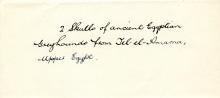 2 Skulls of ancient Egyptian
Greyhounds from Tel-el-Amarna,
Upper Egypt.